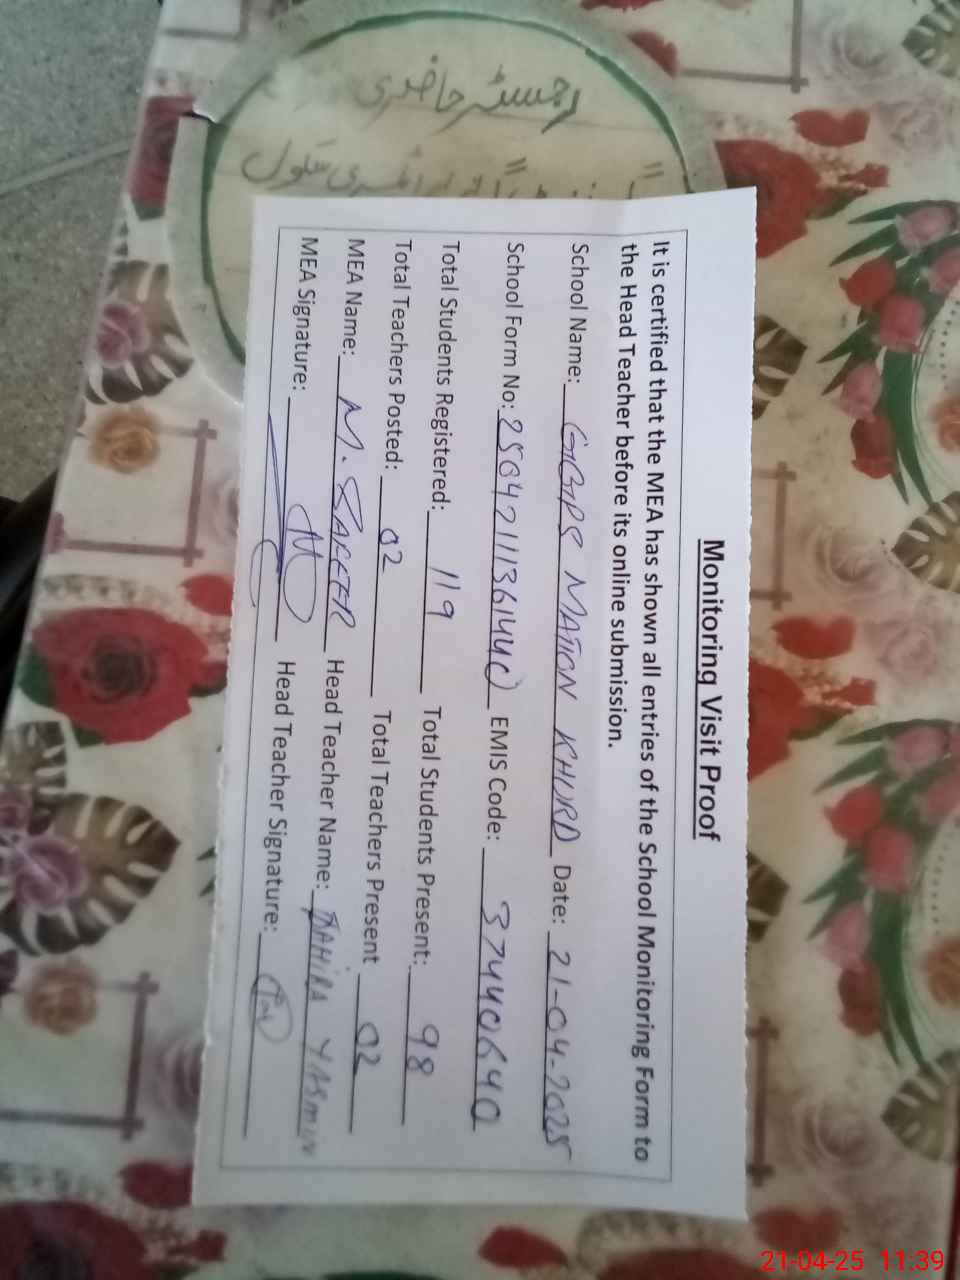 رجسٹر حاضری
سکول
Monitoring Visit Proof
It is certified that the MEA has shown all entries of the School Monitoring Form to
the Head Teacher before its online submission.
School Name: GGPS MATION KHURD Date: 21-04-2025
School Form No: EMIS Code: 37440640
Total Students Registered: 119 Total Students Present: 98
Total Teachers Posted: 02 Total Teachers Present 02
MEA Name: M. SAFEER Head Teacher Name: TAHIRA YASMIN
MEA Signature: Head Teacher Signature:
21-04-25 11:39